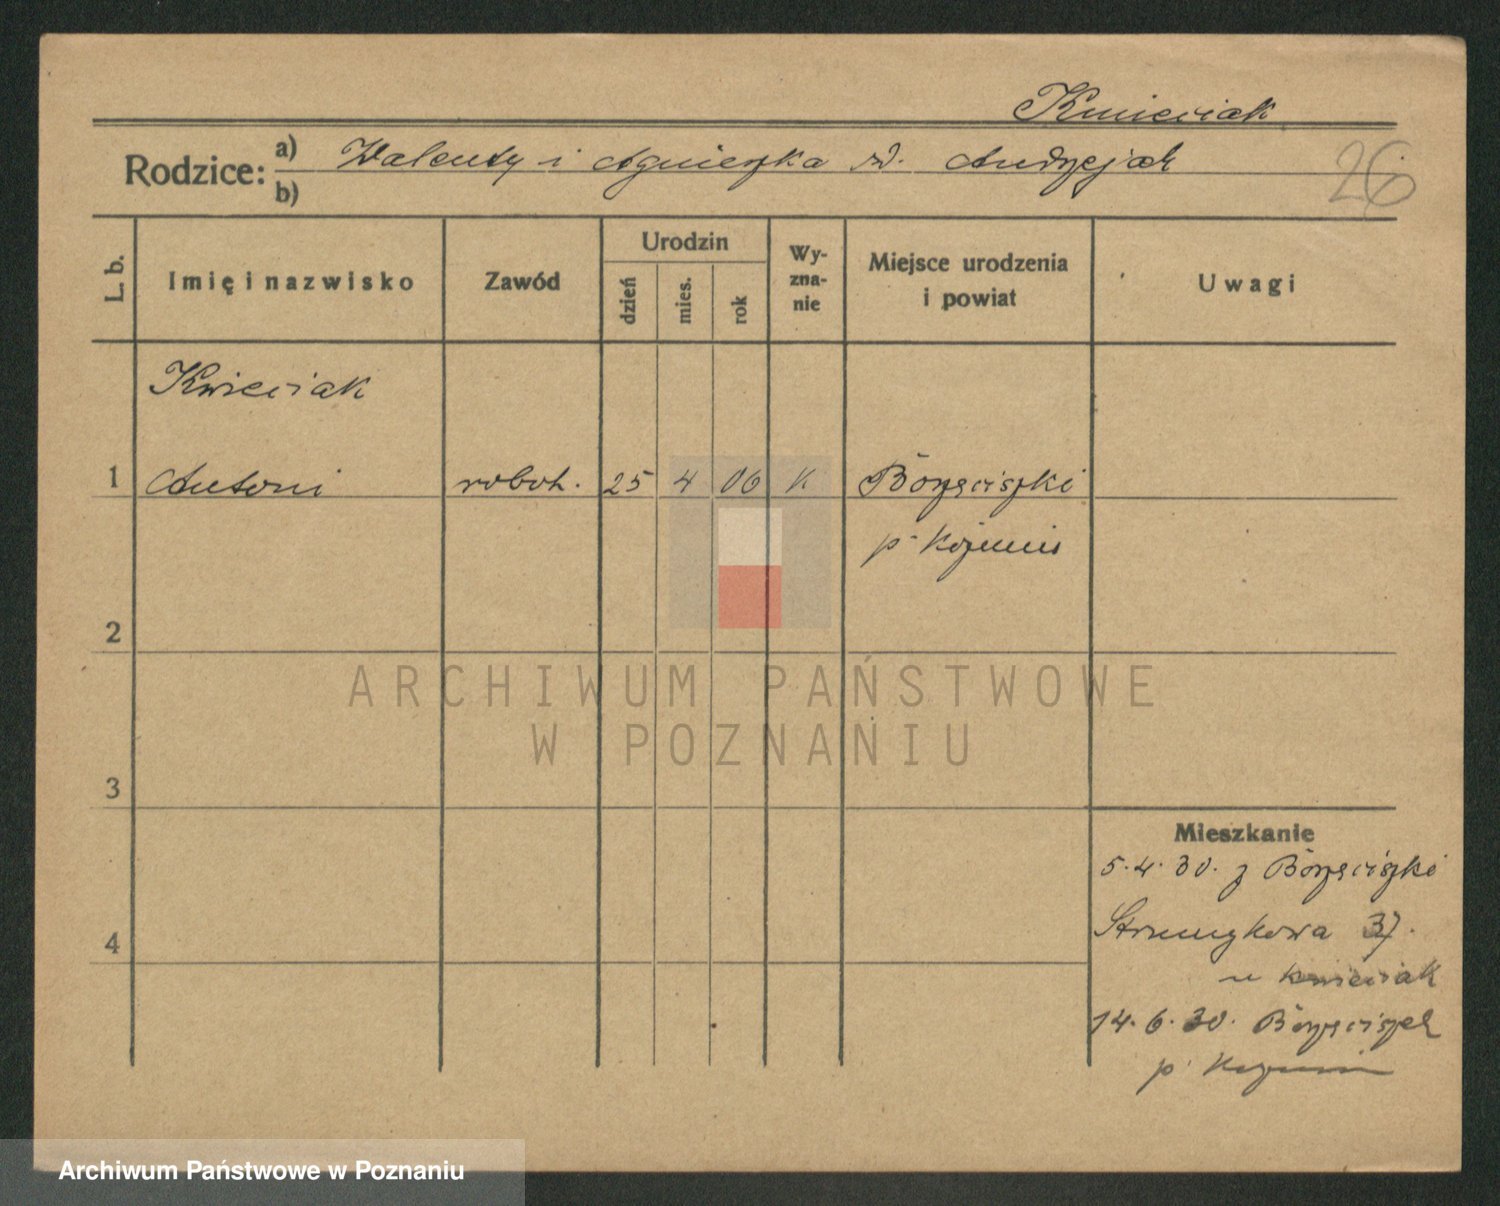 Kwieciak
Rodzice: a) Walenty i Agnieszka rd. Andrzejak
b)
26
L. b.
Imię i nazwisko
Zawód
Urodzin
dzień
mies.
rok
Wy-
zna-
nie
Miejsce urodzenia
i powiat
Uwagi
Kwieciak
1 Antoni robotn. 25 4 06 k Borzęciszki
p. Koźmin
2
3
4
Mieszkanie
5.4.30. z Borzęciszki
Strumykowa 37.
u Kwieciak
14.6.30. Borzęciszek
p. Koźmin
ARCHIWUM PAŃSTWOWE
W POZNANIU
Archiwum Państwowe w Poznaniu